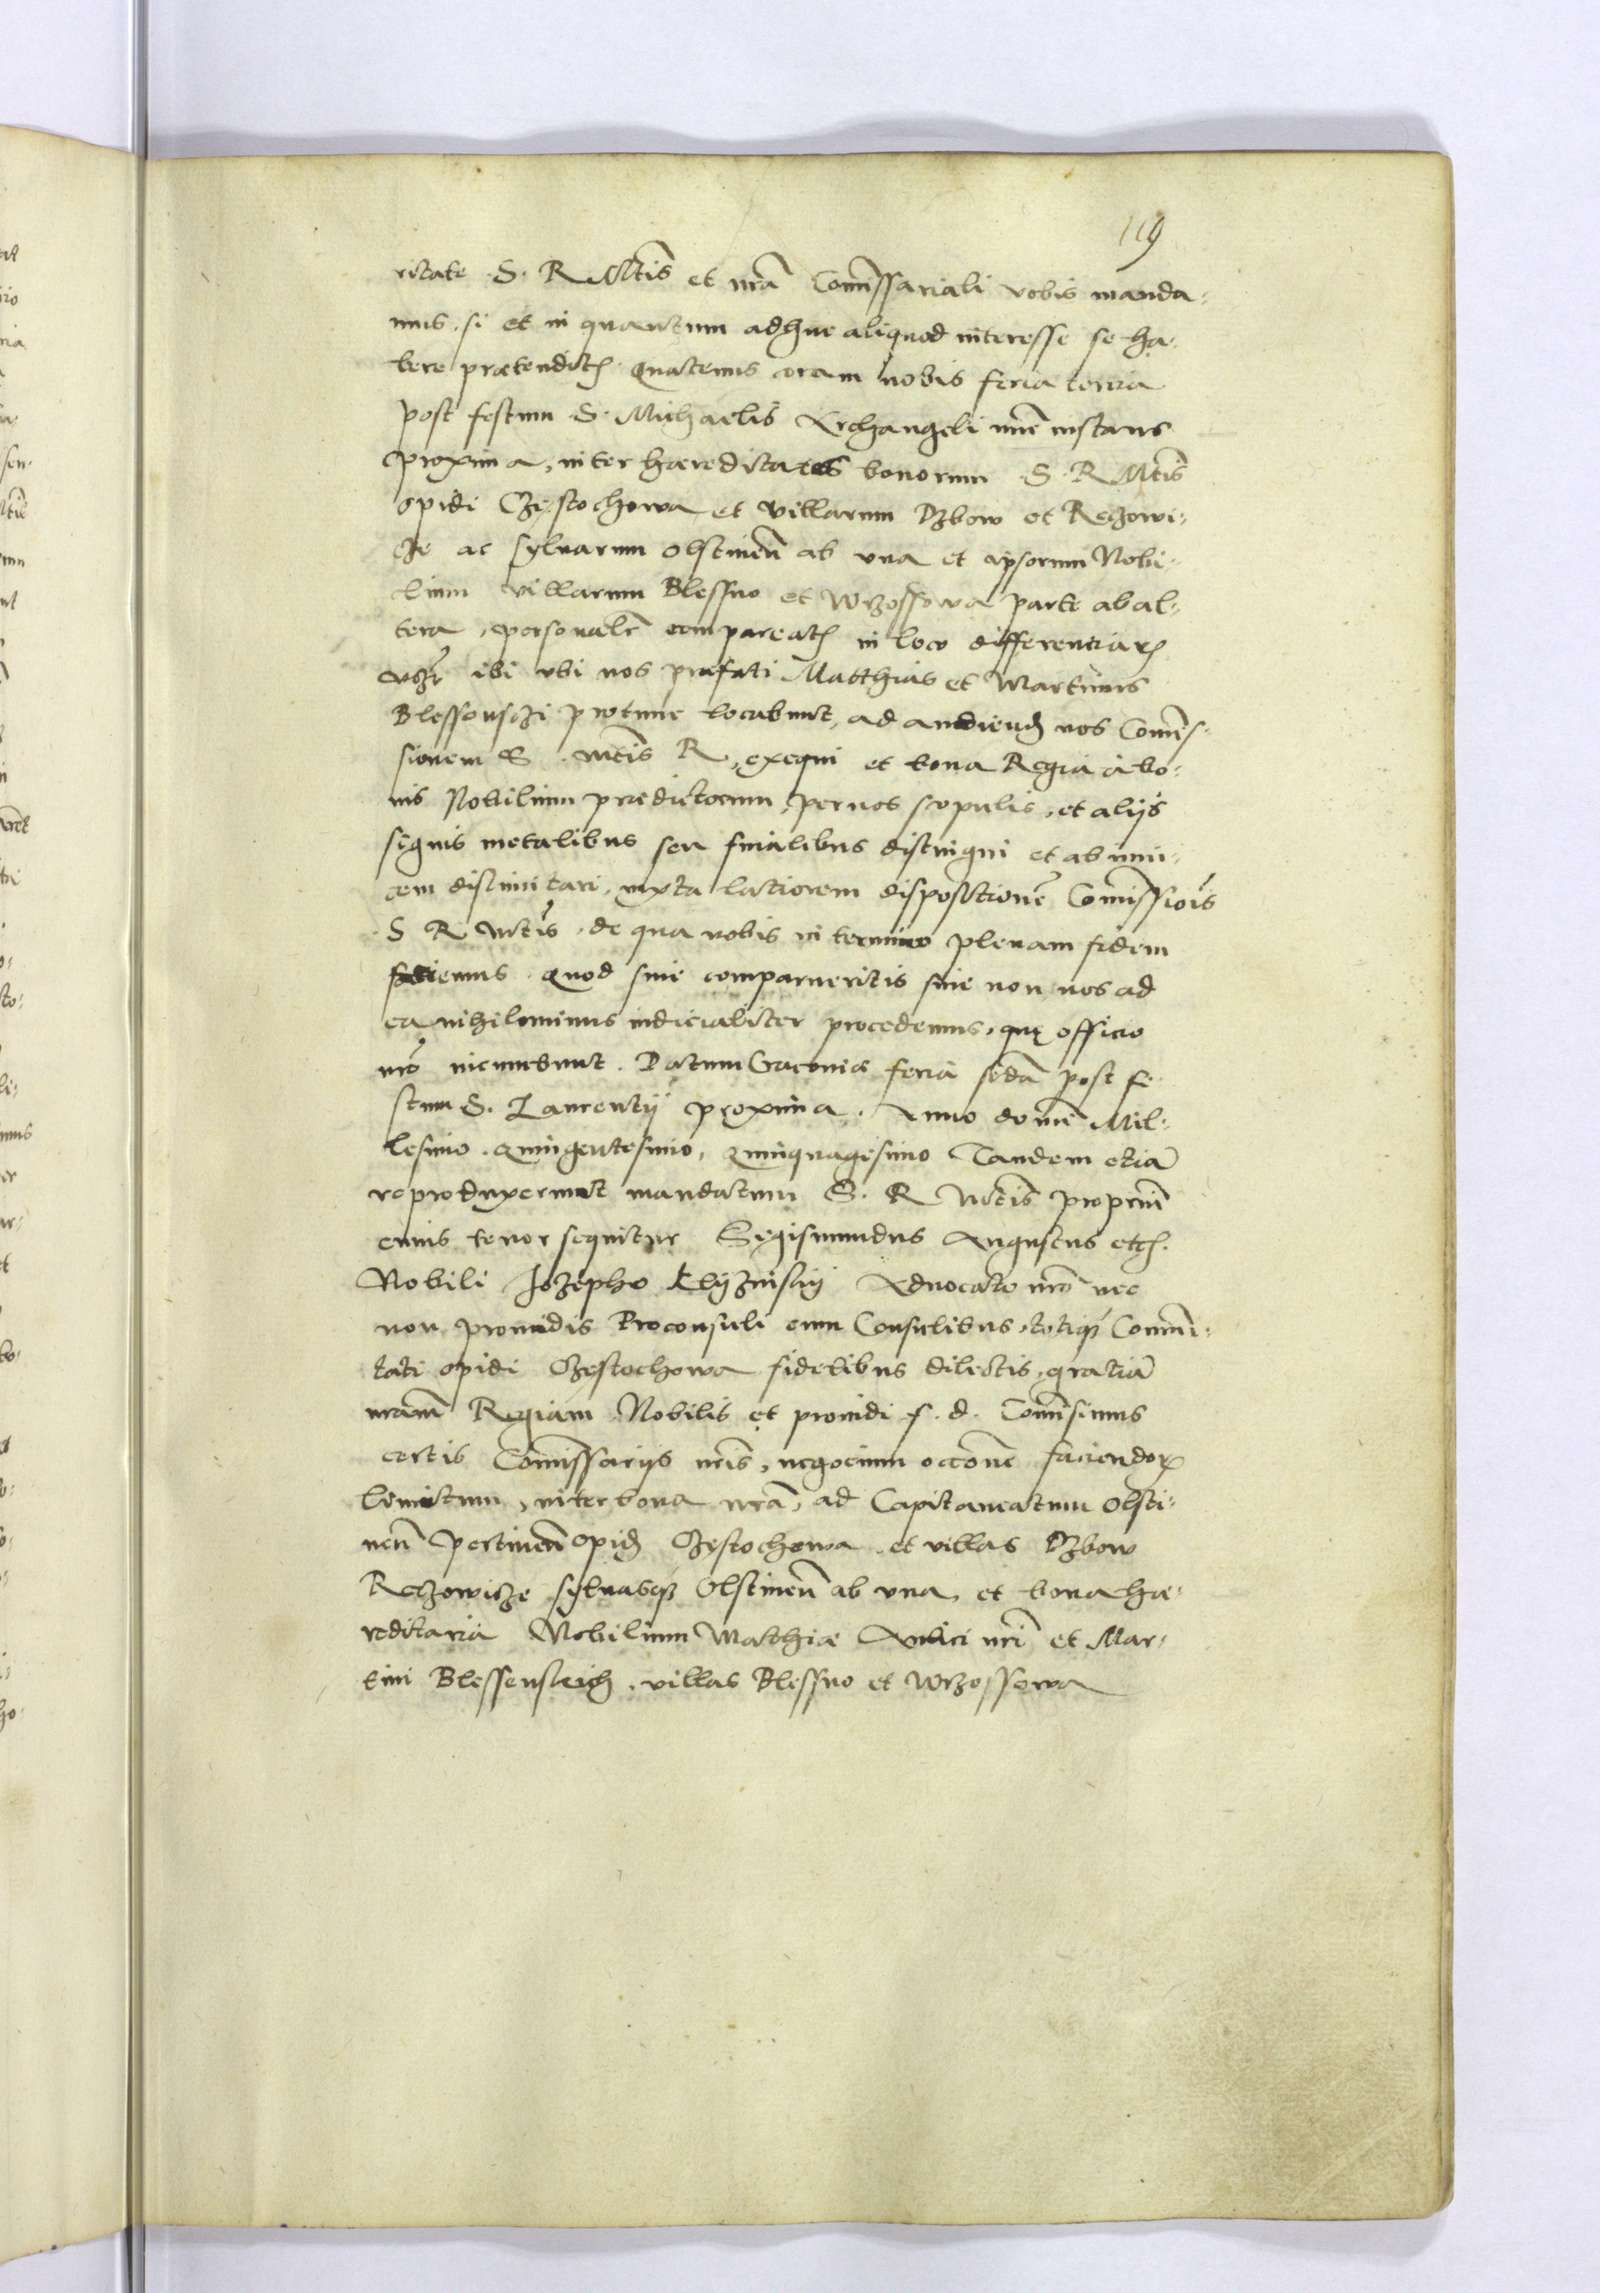 119
ritate S. R Mtis et nrã Comissariali vobis manda-
mus, si et in quantum adhuc aliquod interesse se ha-
bere prætendit. Quatenus coram nobis feria tertia
post festum S. Michaelis Archangeli nunc instans
proxima, inter hæreditates bonorum S. R Mtis
opidi Czestochowa et villarum Dzbow et Reczowi-
cze ac sylvarum Olstinen ab una et ipsorum Nobi-
lium villarum Blessno et Wrzossowa parte ab al-
tera, personalr compareat in loco differentiar
ibi ubi nos præfati Matthias et Martinus
Blessensczi protunc locabunt, ad audiend nos Comis-
sionem S. Mtis R, exequi et bona Regia à bo-
nis Nobilium prædictorum, per nos scopulis, et alijs
signis metalibus seu finalibus distingui et ab inui-
cem dislimitari, iuxta latiorem dispositionẽ Comissiois
S R Mtis, de qua vobis in termino plenam fidem
faciemus. Quod siue comparueritis siue non, nos ad
ea nihilominus iudicialiter procedemus, quę officio
nrõ incumbunt. Datum Cracouiæ feria secda post fe-
stum S. Laurentij proxima. Anno domi Mil-
lesimo. Quingentesimo, Quinquagesimo Tandem etiã
reproduxerunt mandatum S. R Mtis proprium
cuius tenor sequitur Sigismundus Augustus etc.
Nobili Jozepho Aduocato nrõ nec
non prouidis Proconsuli cum Consulibus, totiqꝫ Comuni-
tati opidi Czestochowa fidelibus dilectis, gratiã
nram Regiam Nobilis et prouidi f. d. Comisimus
certis Comissarijs nris, negocium occone faciendor
limitum, inter bona nrã, ad Capitaneatum Olsti-
nen pertinen opid Częstochowa et villas Dzbow
Reczowicze sylvasqꝫ Olstinen ab una, et bona hæ-
reditaria Nobilium Matthiæ Aulici nri et Mar-
tini Blessenskich, villas Blessno et Wrzossowa